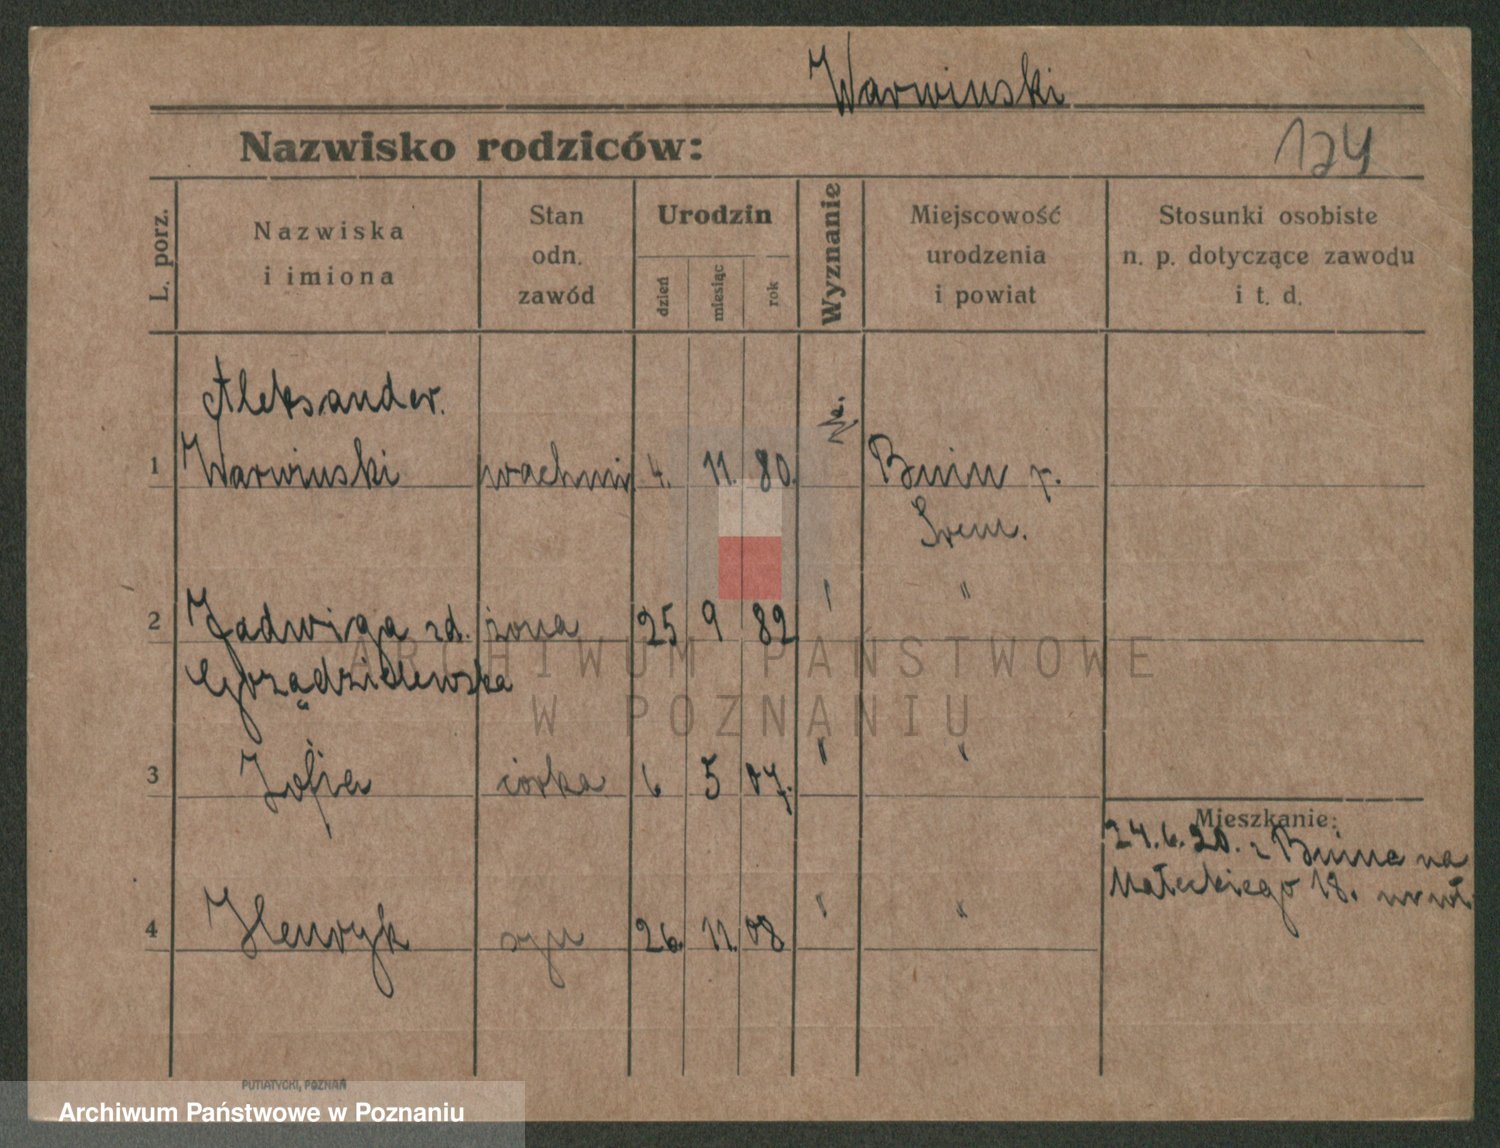 Warwinski
Nazwisko rodziców:
124
L. porz.
Nazwiska
i imiona
Stan
odn.
zawód
Urodzin
dzień
miesiąc
rok
Wyznanie
Miejscowość
urodzenia
i powiat
Stosunki osobiste
n. p. dotyczące zawodu
i t. d.
Aleksander.
1 Warwinski wachmi. 4. 11. 80. Bnin p.
Śrem.
2 Jadwiga zd. żona 25 9 82 " "
Gorządzielewska
3 Zofja córka 6 5 07. " "
Mieszkanie:
24.6.20. z Bnina na
Małeckiego 18.
4 Henryk syn 26. 11. 08 " "
ARCHIWUM PAŃSTWOWE
W POZNANIU
PUTIATYCKI, POZNAŃ
Archiwum Państwowe w Poznaniu